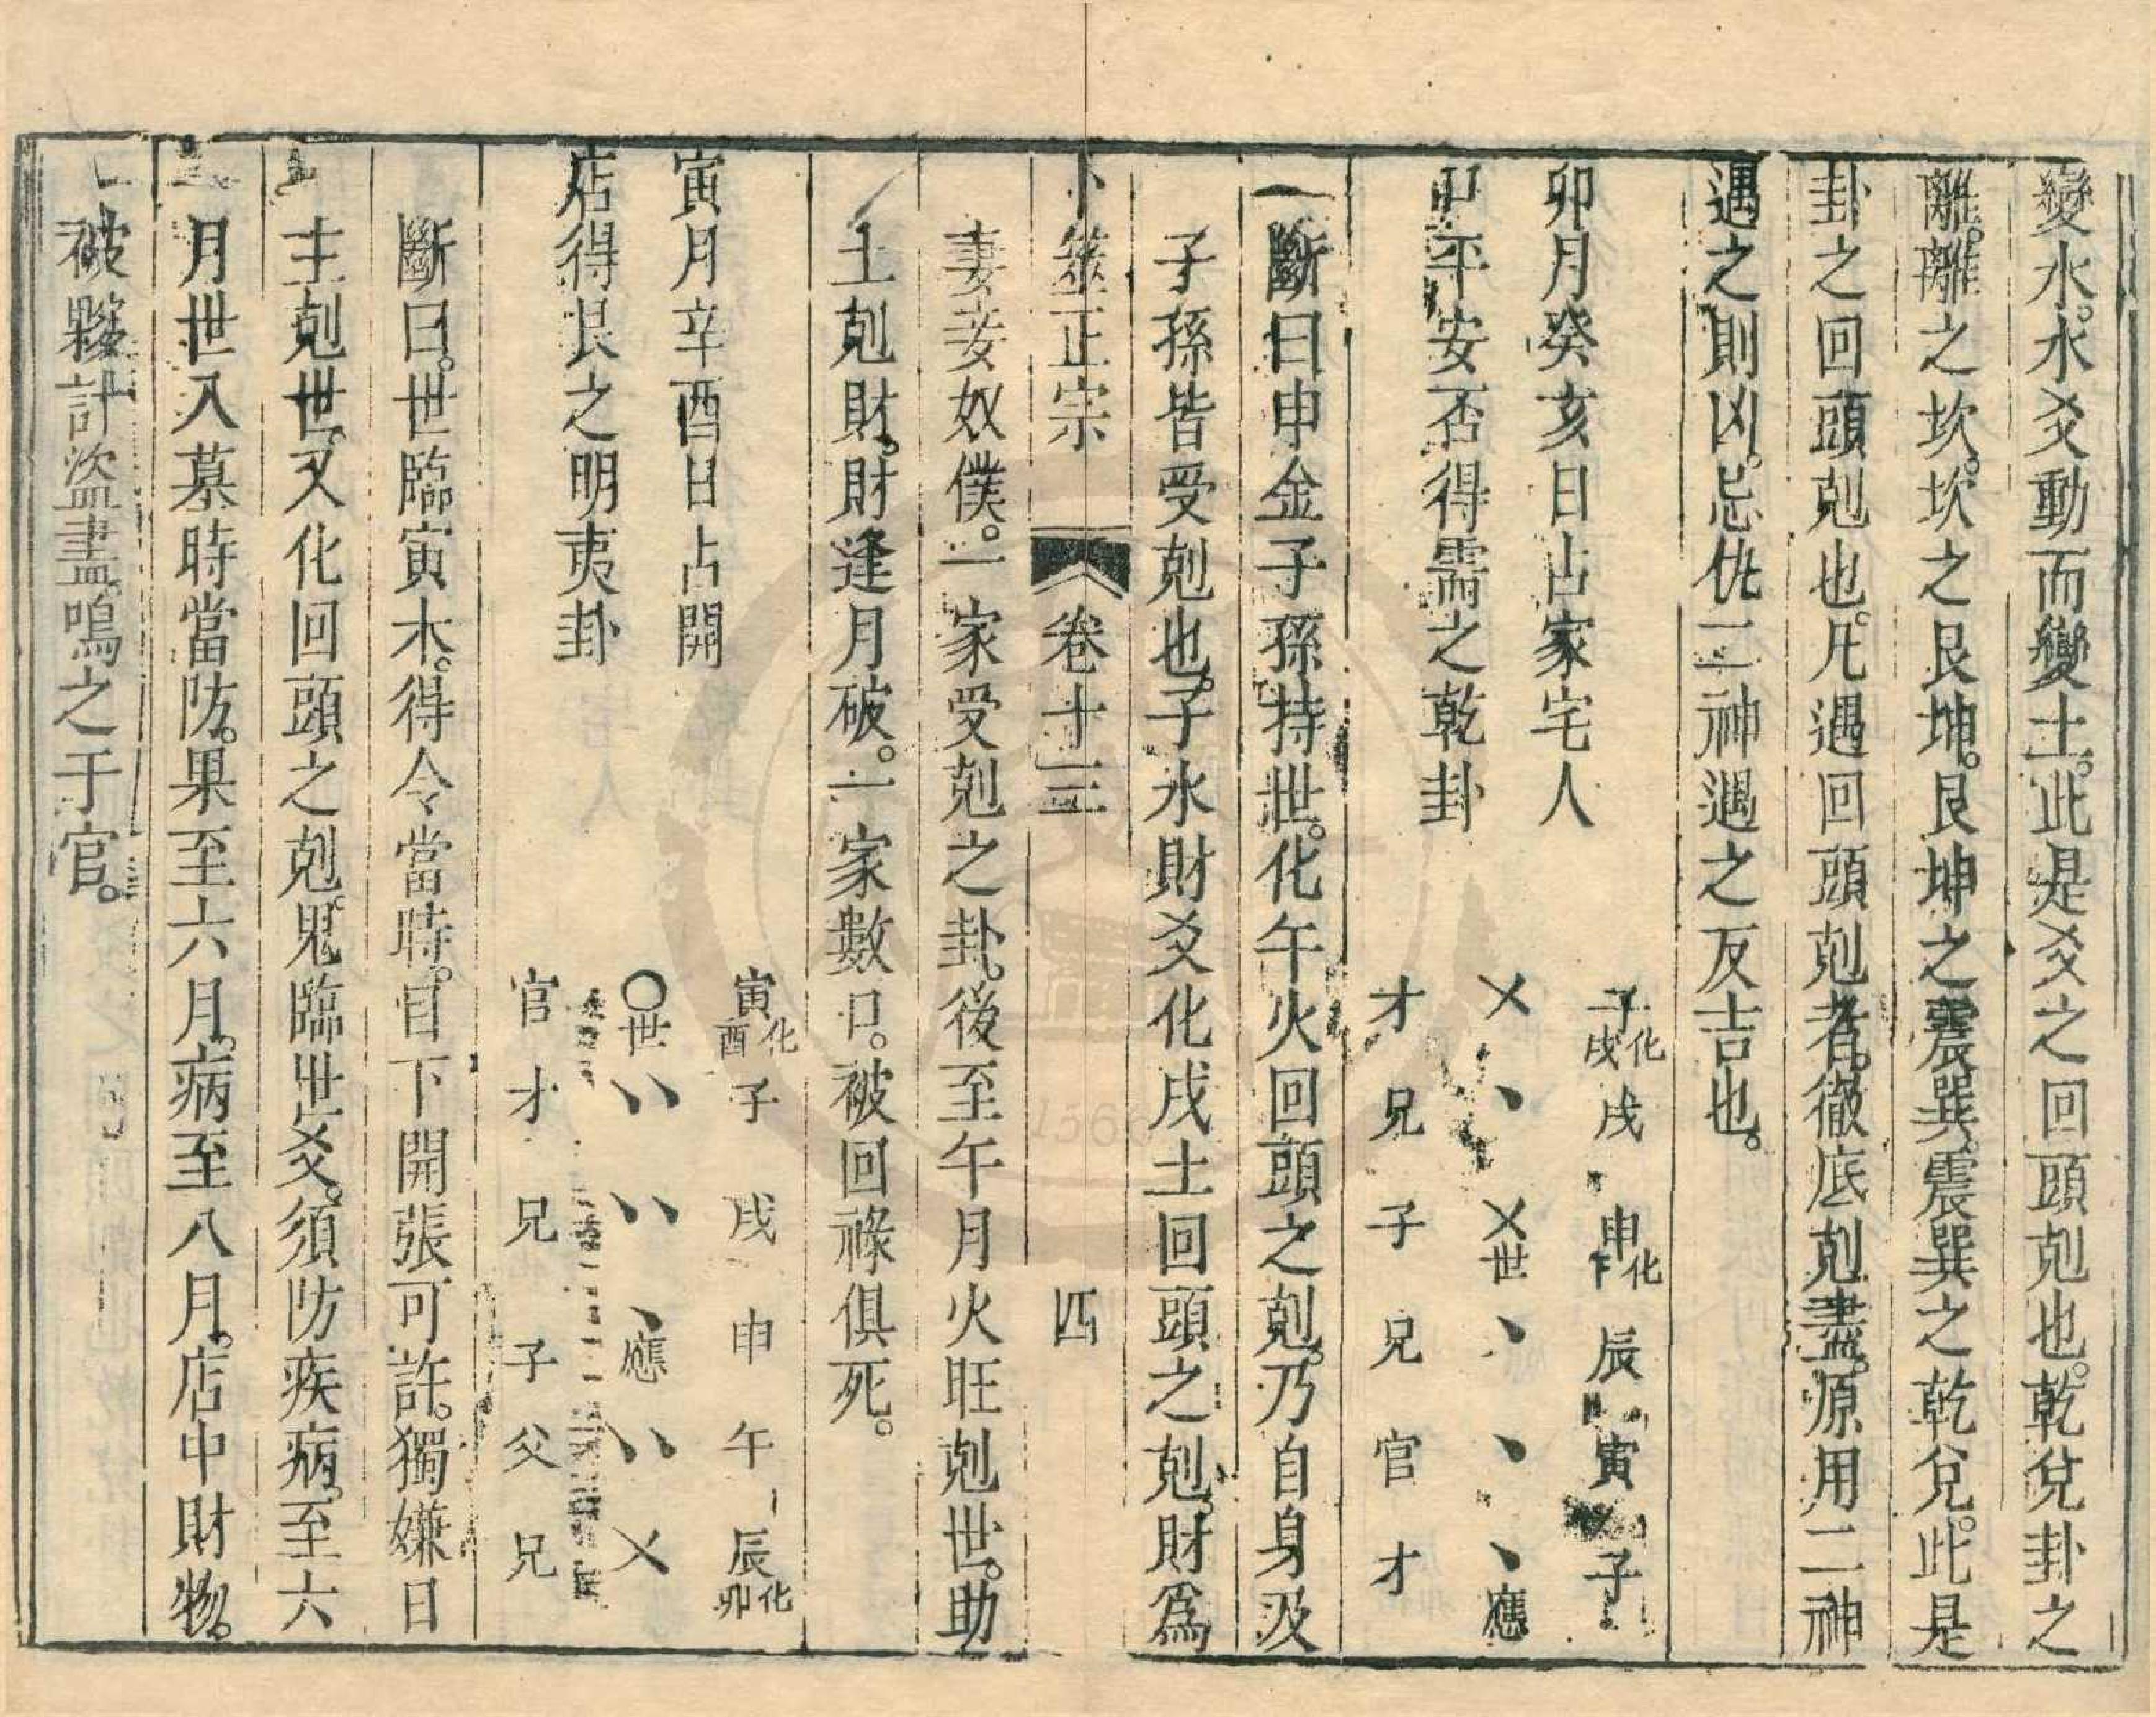 變水。水爻動而變土。此是爻之回頭剋也。乾兌卦之
離。離之坎。坎之艮坤。艮坤之震巽。震巽之乾兌。此是
卦之回頭剋也。凡遇回頭剋者。徹底剋盡。原用二神
遇之則凶。忌仇二神遇之反吉也。
卯月癸亥日占家宅人
口平安否得需之乾卦
子化戌 戌 申化午 辰 寅 子
乂 丶 乂世 丶 丶 丶應
才 兄 子 兄 官 才
斷曰申金子孫持世。化午火回頭之剋。乃自身及
子孫皆受剋也。子水財爻化戌土回頭之剋。財為
卜筮正宗 卷十三 四
妻妾奴僕。一家受剋之卦。後至午月火旺剋世。助
土剋財。財逢月破。一家數口。被回祿俱死。
寅月辛酉日占開
店得艮之明夷卦
寅化酉 子 戌 申 午 辰化卯
〇世 丶丶 丶丶 丶應 丶丶 乂
官 才 兄 子 父 兄
斷曰。世臨寅木。得令當時。目下開張可許。獨嫌日
主剋世。又化回頭之剋。鬼臨世爻。須防疾病。至六
月世入墓時當防。果至六月。病至八月。店中財物。
被夥計盜盡。鳴之于官。